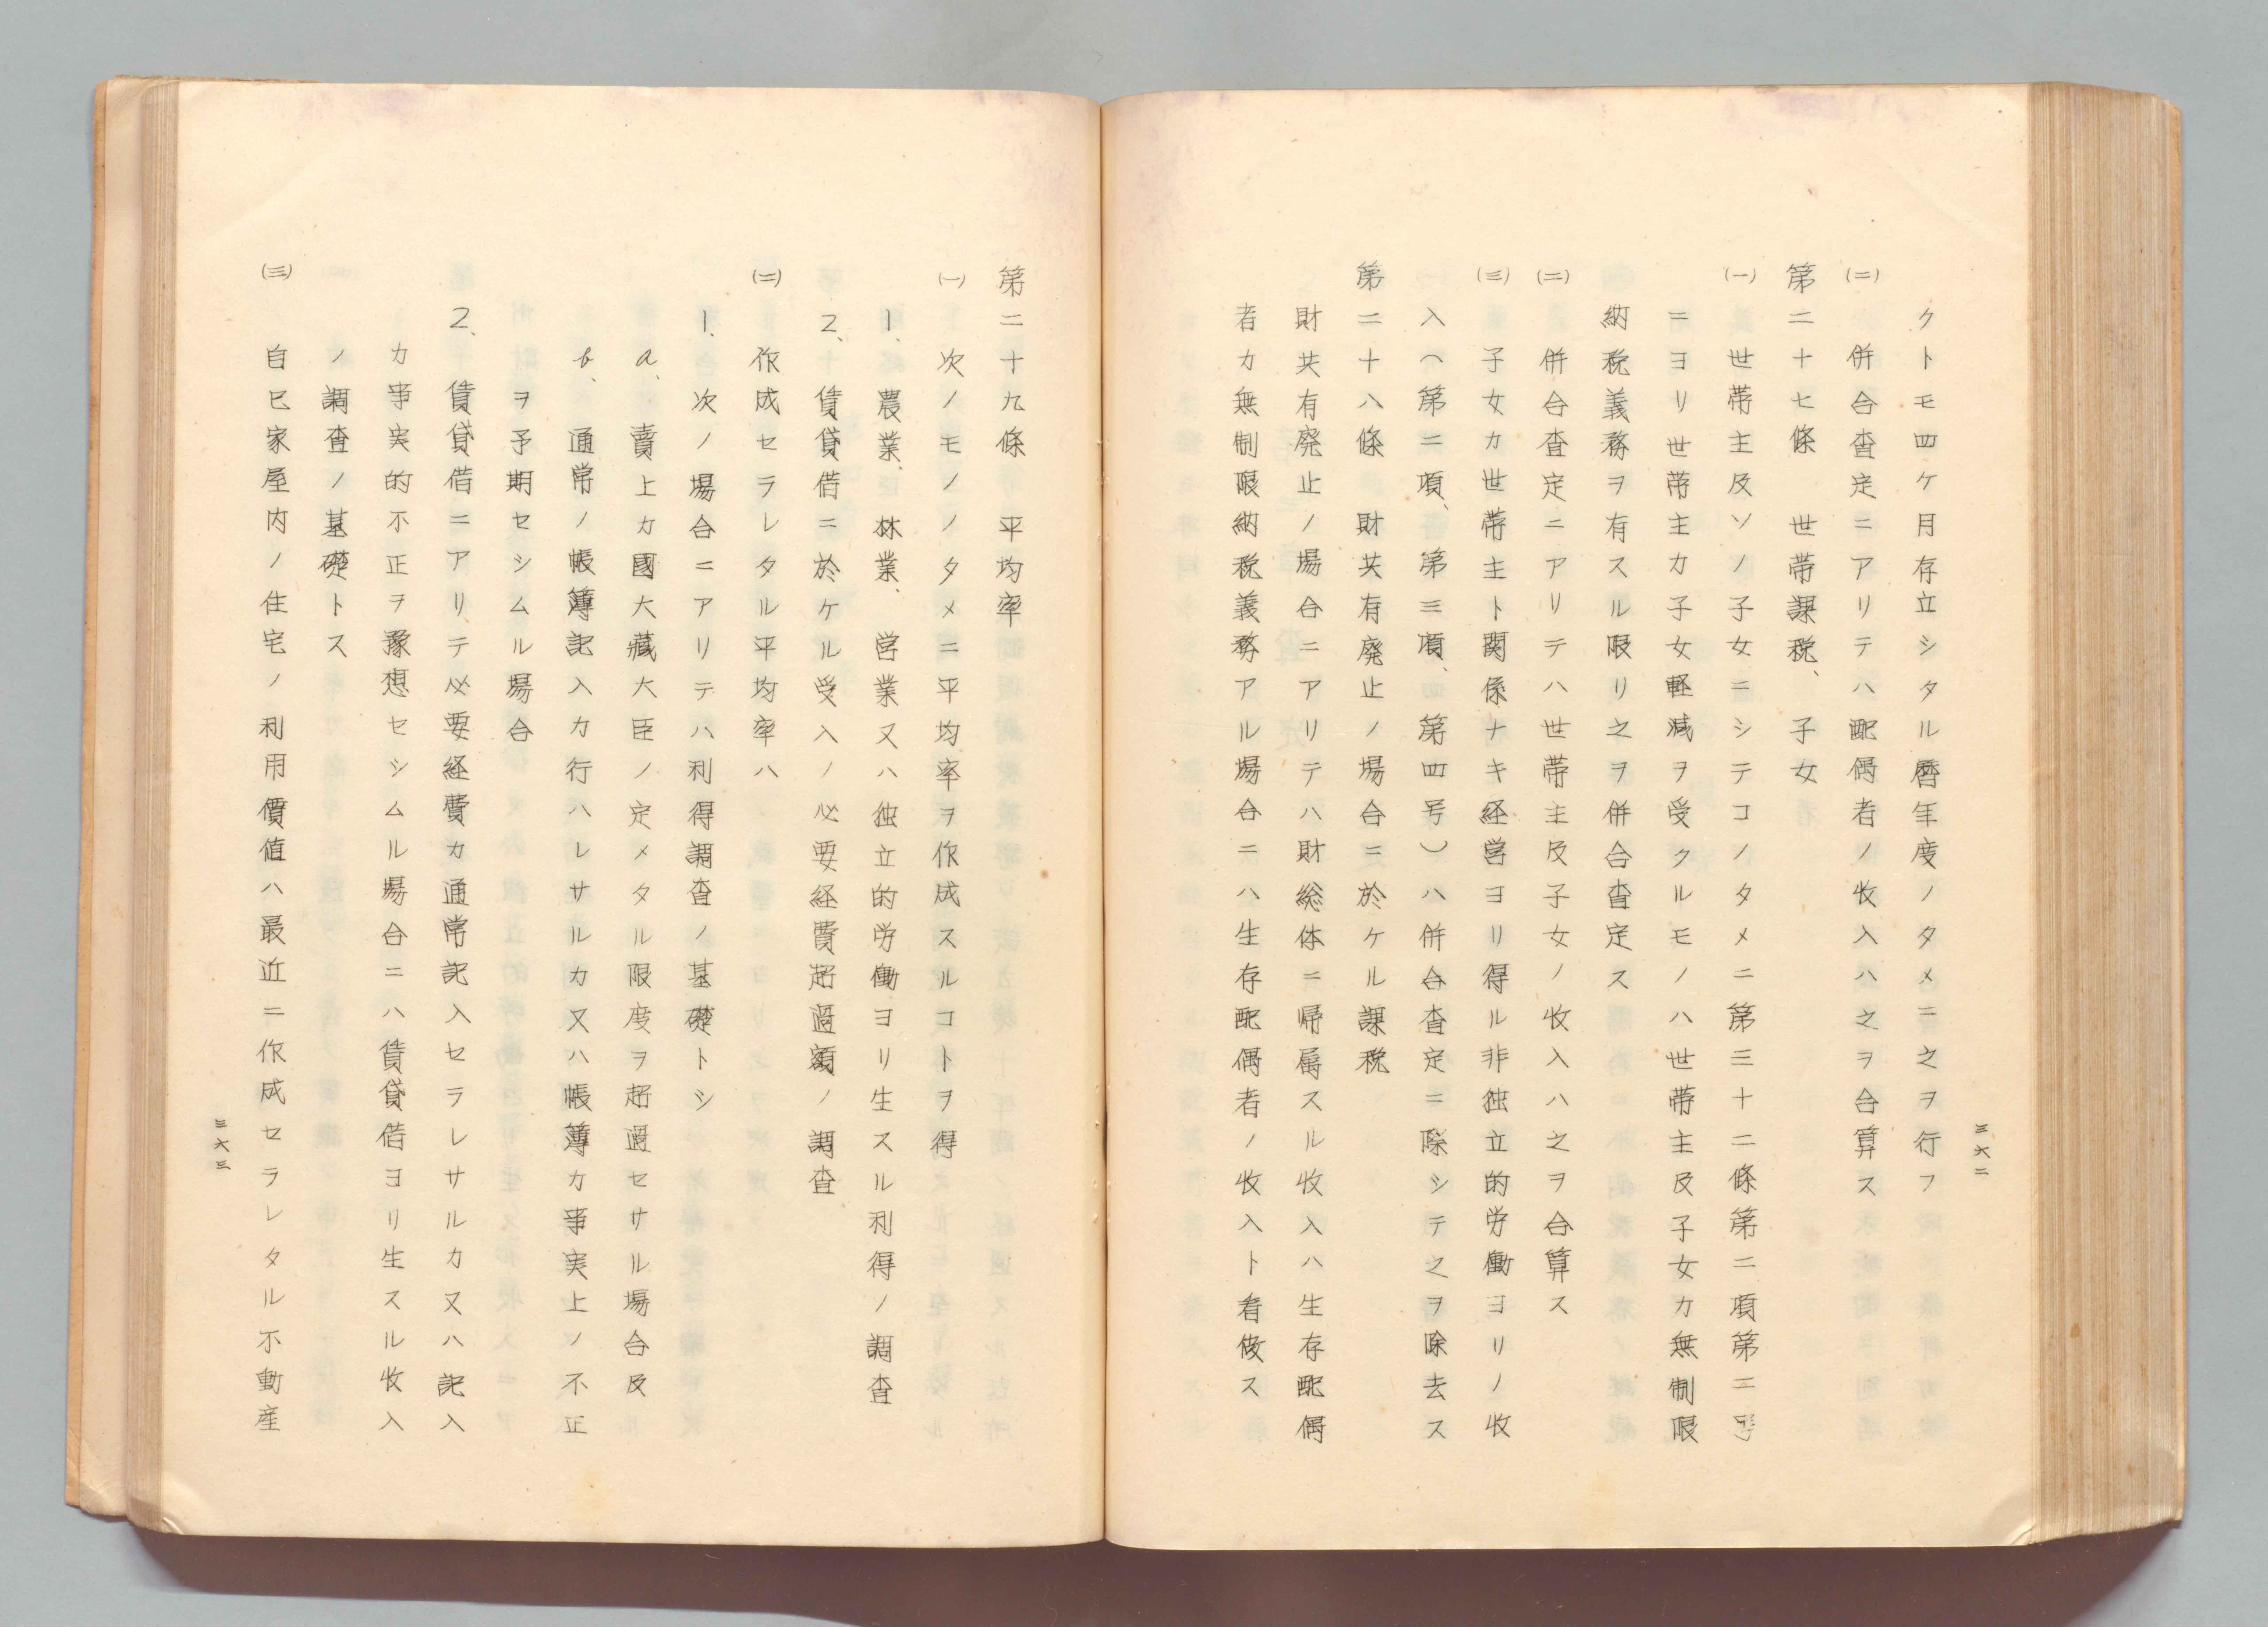 三六二
クトモ四ケ月存立シタル暦年度ノタメニ之ヲ行フ
(二) 併合査定ニアリテハ配偶者ノ收入ハ之ヲ合算ス
第二十七條 世帯課税、子女
(一) 世帯主及ソノ子女ニシテコノタメニ第三十二條第二項第二号
ニヨリ世帯主カ子女軽減ヲ受クルモノハ世帯主及子女カ無制限
納税義務ヲ有スル限リ之ヲ併合査定ス
(二) 併合査定ニアリテハ世帯主及子女ノ收入ハ之ヲ合算ス
(三) 子女カ世帯主ト関係ナキ経営ヨリ得ル非独立的労働ヨリノ收
入(第二項、第三項、第四号)ハ併合査定ニ際シテ之ヲ除去ス
第二十八條 財共有廃止ノ場合ニ於ケル課税
財共有廃止ノ場合ニアリテハ財総体ニ帰属スル收入ハ生存配偶
者カ無制限納税義務アル場合ニハ生存配偶者ノ收入ト看做ス
第二十九條 平均率
(一) 次ノモノノタメニ平均率ヲ作成スルコトヲ得
1、農業、林業、営業又ハ独立的労働ヨリ生スル利得ノ調査
2、賃貸借ニ於ケル受入ノ必要経費超過額ノ調査
(二) 作成セラレタル平均率ハ
1、次ノ場合ニアリテハ利得調査ノ基礎トシ
a、賣上カ國大藏大臣ノ定メタル限度ヲ超過セサル場合及
b、通常ノ帳簿記入カ行ハレサルカ又ハ帳簿カ事実上ノ不正
ヲ予期セシムル場合
2、賃貸借ニアリテ必要経費カ通常記入セラレサルカ又ハ記入
カ事実的不正ヲ豫想セシムル場合ニハ賃貸借ヨリ生スル收入
ノ調査ノ基礎トス
(三) 自己家屋内ノ住宅ノ利用價値ハ最近ニ作成セラレタル不動産
三六三